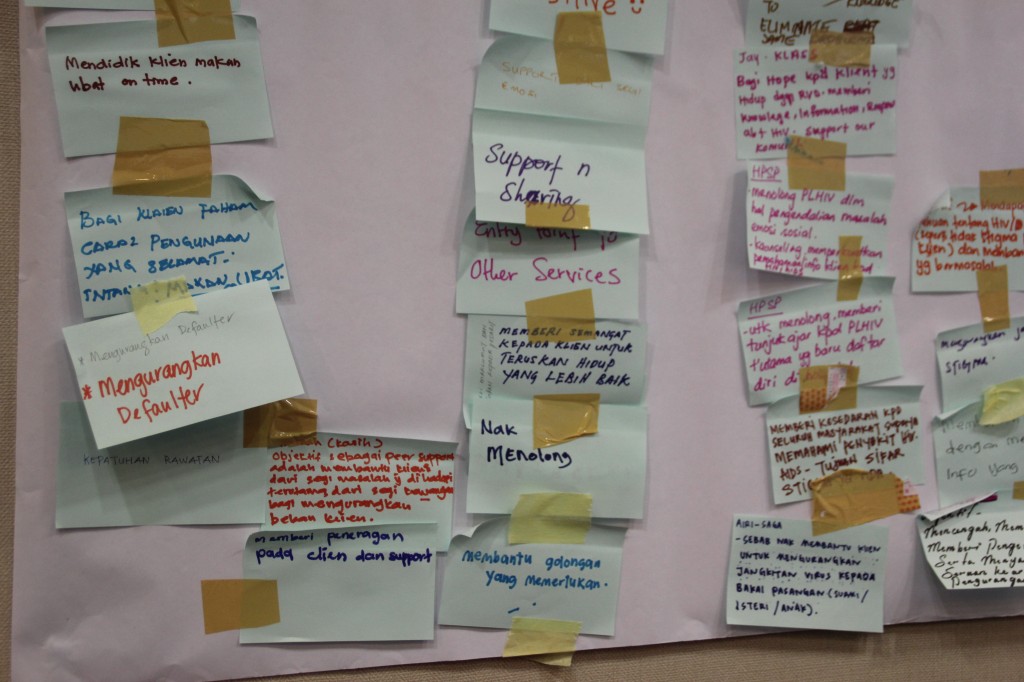 Mendidik klien makan
ubat on time.
BAGI KLAIEN FAHAM
CARA2 PENGUNAAN
YANG SELAMAT.
MAKAN UBAT.
* Mengurangkan Defaulter
* Mengurangkan
Defaulter
KEPATUHAN RAWATAN
(kasih)
Objektif sebagai peer support
adalah membantu klien
dari segi masalah yg dihadapi
terutama dari segi
bagi mengurangkan
beban klien.
memberi peneragan
pada clien dan support
SUPPORT DARI SEGI
EMOSI
Support n
Sharing
Entry Point to
Other Services
MEMBERI SEMANGAT
KEPADA KLIEN UNTUK
TERUSKAN HIDUP
YANG LEBIH BAIK
Nak
MEnolong
membantu golongan
yang memerlukan.
TO
ELIMINATE
SAME
Jay. KLASS
Bagi Hope kpd klient yg
Hidup dgn RVD. memberi
knowledge, Information,
abt HIV. Support our
HPSP
- menolong PLHIV dlm
hal pengendalian masalah
emosi sosial.
- kaunseling
HPSP
- utk menolong, memberi
tunjuk ajar kpd PLHIV
t'utama yg baru daftar
diri di
MEMBERI KESEDARAN KPD
SELURUH MASYARAKAT SUPAYA
MEMAHAMI PENYAKIT HIV.
AIDS - TUJUAN SIFAR
AIRI-SAGA
- SEBAB NAK MEMBANTU KLIEN
UNTUK MENGURANGKAN
JANGKITAN VIRUS KEPADA
BAKAL PASANGAN (SUAMI/
ISTERI/ANAK).
tentang HIV/
stigma
klien) dan
yg bermasalah
STIGMA.
dengan
Info yang
Memberi
Serta